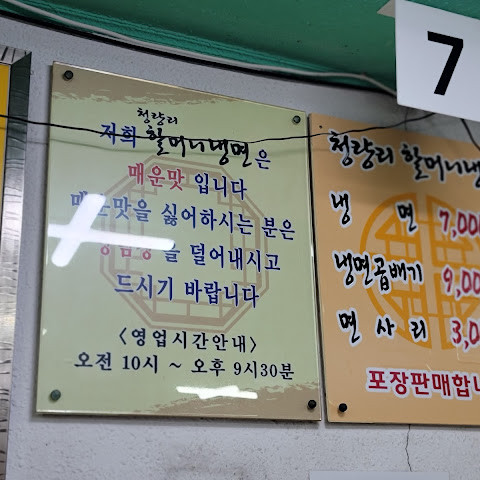 청량리
저희 할머니냉면은
매운맛 입니다
매운맛을 싫어하시는 분은
을 덜어내시고
드시기 바랍니다
〈영업시간안내〉
오전 10시 ~ 오후 9시30분
7
청량리 할머니냉
냉 면 7,00
냉면곱배기 9,00
면 사 리 3,0
포장판매합니